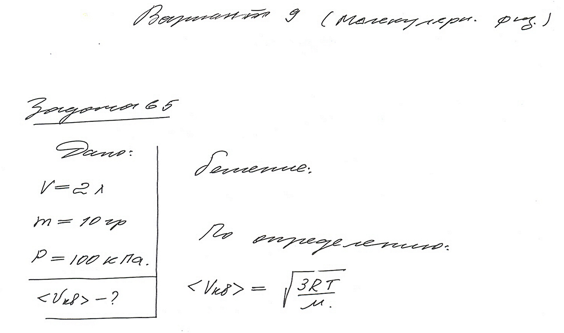 Вариант 9 (Молекулярн. физ.)
Задача 65
Дано:
V = 2 л
m = 10 гр
P = 100 кПа.
<Vкв> - ?
Решение:
По определению:
<Vкв> = √(3RT/М.)